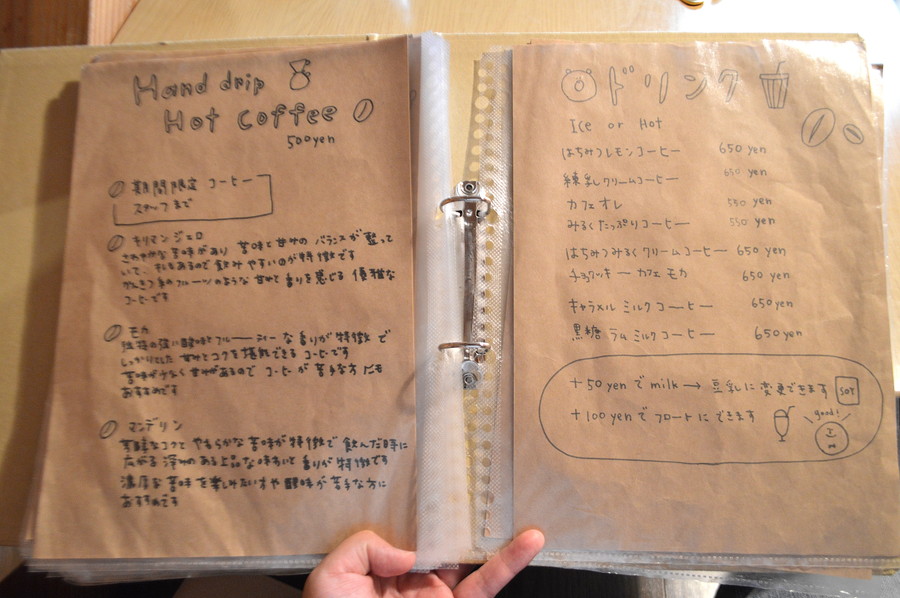 Hand drip
Hot Coffee
500yen
期間限定 コーヒー
スタッフまで
キリマンジェロ
さわやかな苦味があり 苦味と甘サのバランスが整って
いて、キレもあるので飲みやすいのが特徴です
かんきつ系のフルーツのような甘さと香りを感じる 優雅な
コーヒーです
モカ
独特の強い酸味とフルーティーな香りが特徴で
しっかりとした 甘サとコクを堪能できる コーヒーです
苦味が少なく甘サがあるので コーヒーが苦手な方にも
おすすめです
マンデリン
芳醇なコクと やわらかな苦味が特徴で 飲んだ時に
広がる 深みのある上品な味わいと香りが特徴です
濃厚な苦味を楽しみたい方や酸味が苦手な方に
おすすめです
ドリンク
Ice or Hot
はちみつレモンコーヒー 650 yen
練乳クリームコーヒー 650 yen
カフェオレ 550 yen
みるくたっぷりコーヒー 550 yen
はちみつみるくクリームコーヒー 650 yen
チョコクッキーカフェモカ 650 yen
キャラメルミルクコーヒー 650 yen
黒糖ラムミルクコーヒー 650 yen
+50 yen で milk → 豆乳に変更できます SOY
+100 yen で フロートにできます good!